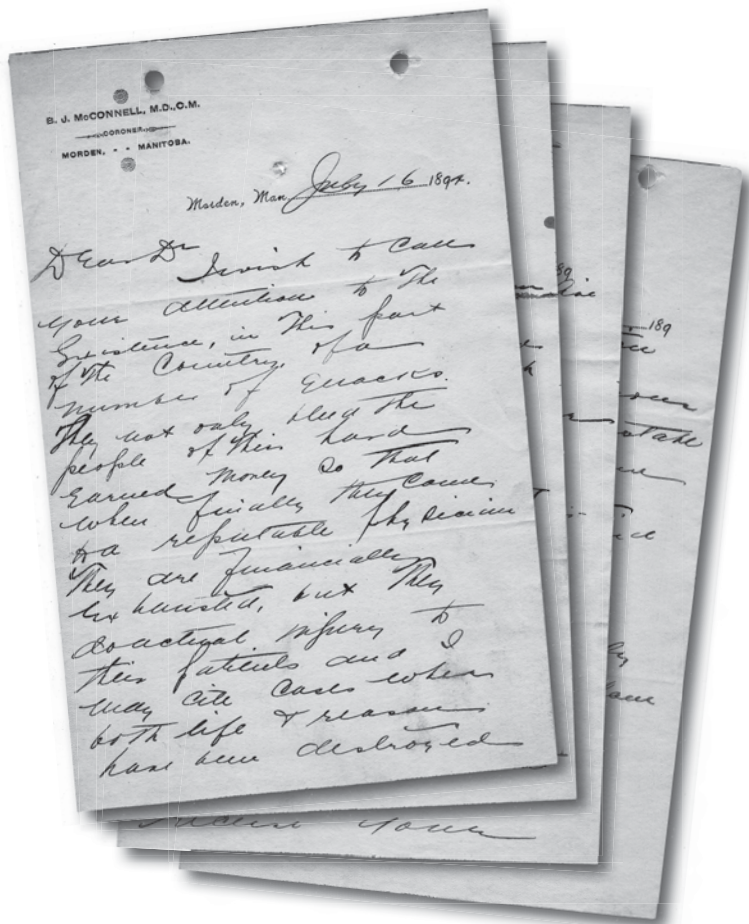 B. J. McCONNELL, M.D., C.M.
CORONER.
MORDEN, - - MANITOBA.
Morden, Man. July 16 1894.
Dear Dr
I wish to call
your attention to the
Existence, in this part
of the Country, of a
number of Quacks.
They not only bleed the
people of their hard
earned money so that
when finally they come
to a reputable physician
They are financially
Exhausted, but They
do actual injury to
their patients and I
may cite cases where
both life & reason
have been destroyed
189
189
your